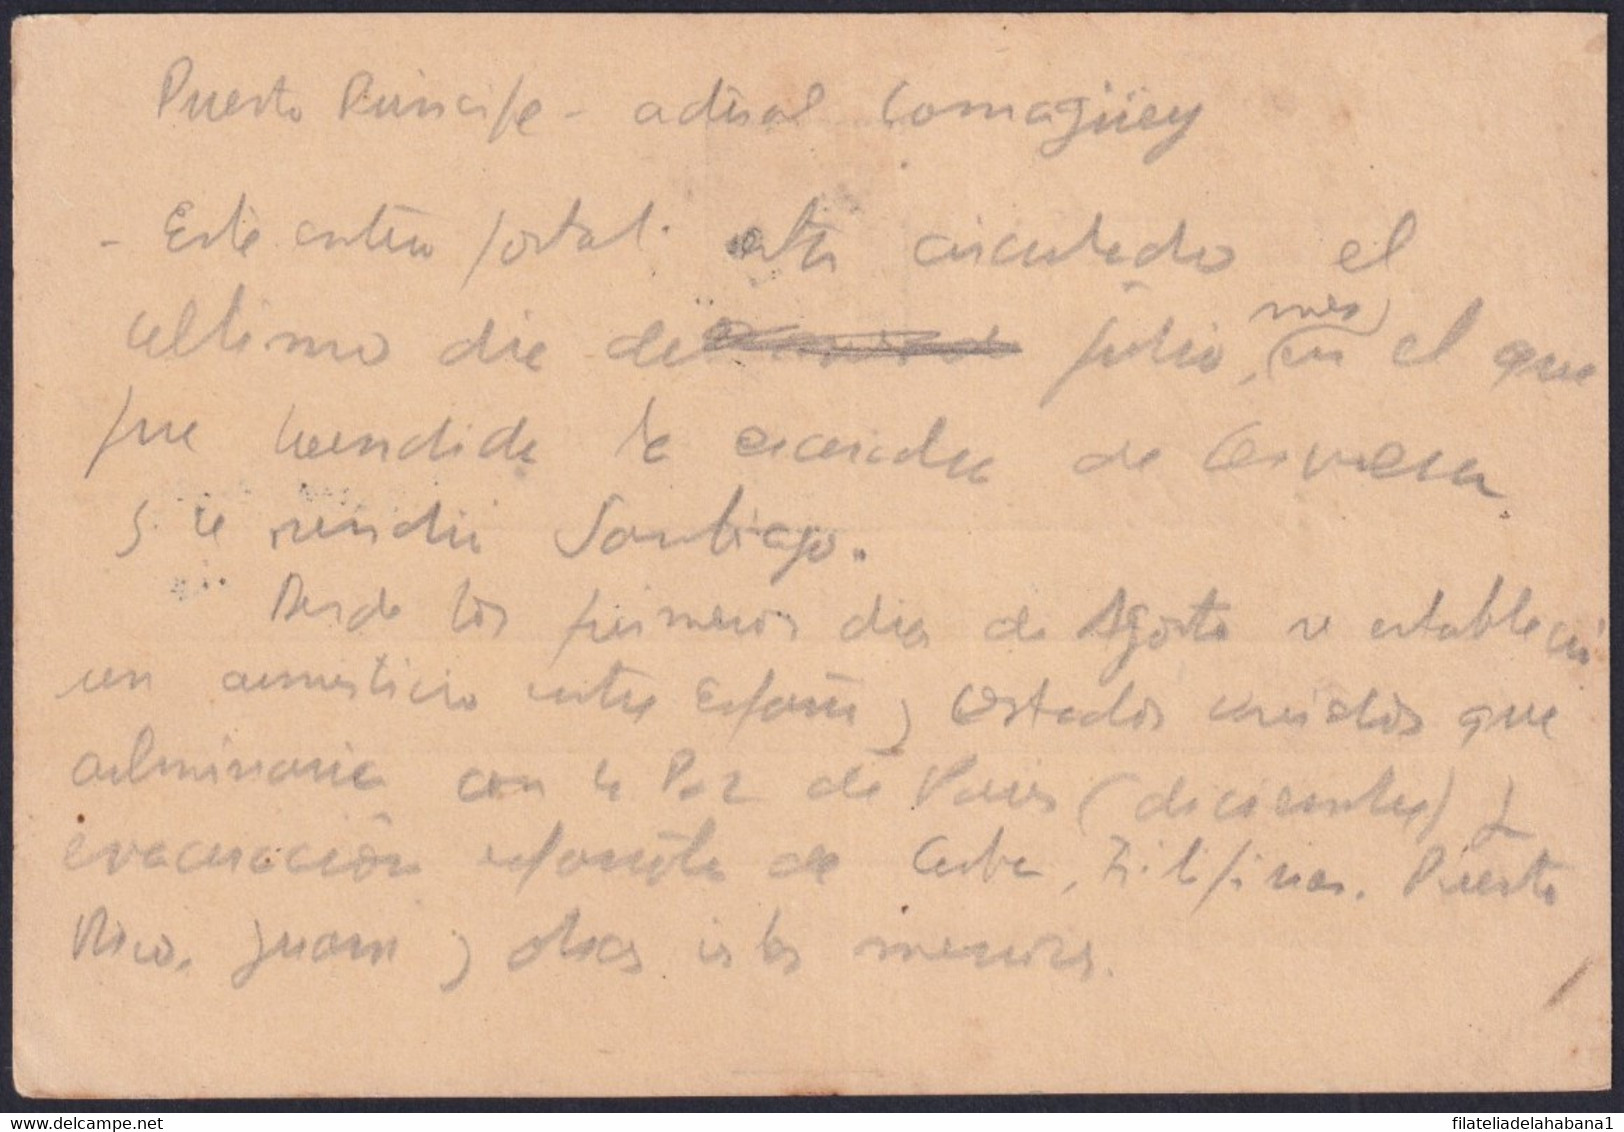 Puerto Principe - actual Camagüey
- Este entero postal está circulado el
ultimo dia de julio, mes en el que
fue hundida la escuadra de Cervera
y se rindió Santiago.
Desde los primeros dias de Agosto se estableció
un armisticio entre España y Estados Unidos que
culminaria con la Paz de Paris (diciembre) y
evacuación española de Cuba, Filipinas, Puerto
Rico, Guam y otras islas menores.
filateliadelahabana1